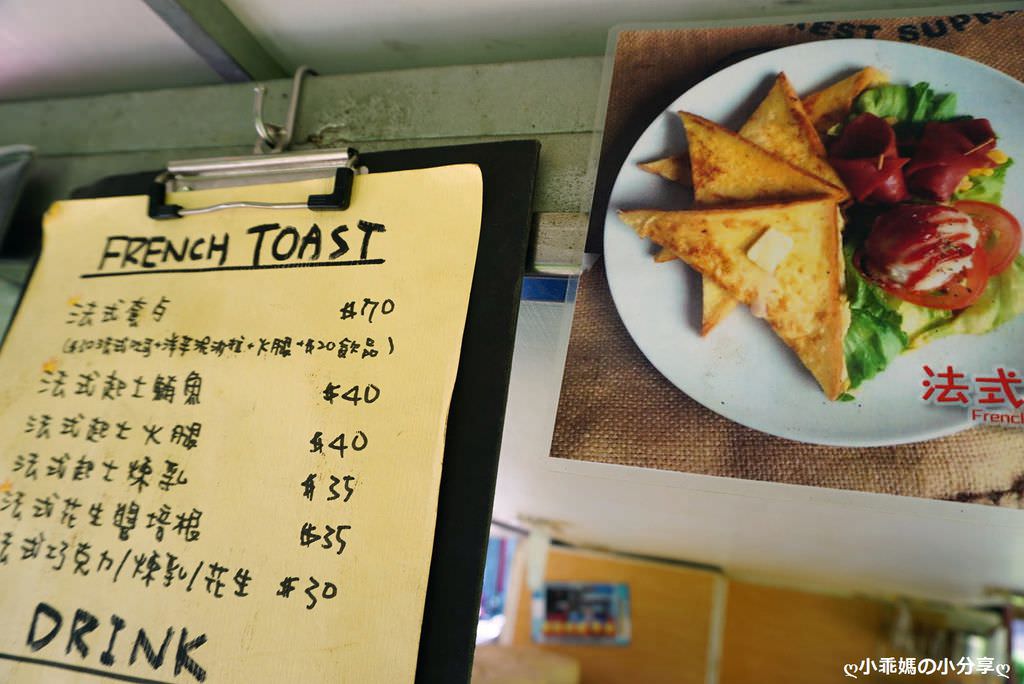 FRENCH TOAST
法式套点 $70
法式吐司+洋芋泥沙拉+火腿+$20飲品)
法式起士鮪魚 $40
法式起士火腿 $40
法式起士煉乳 $35
法式花生醬培根 $35
法式巧克力/煉乳/花生 $30
DRINK
EST SUP
法式
French
ღ小乖媽の小分享ღ